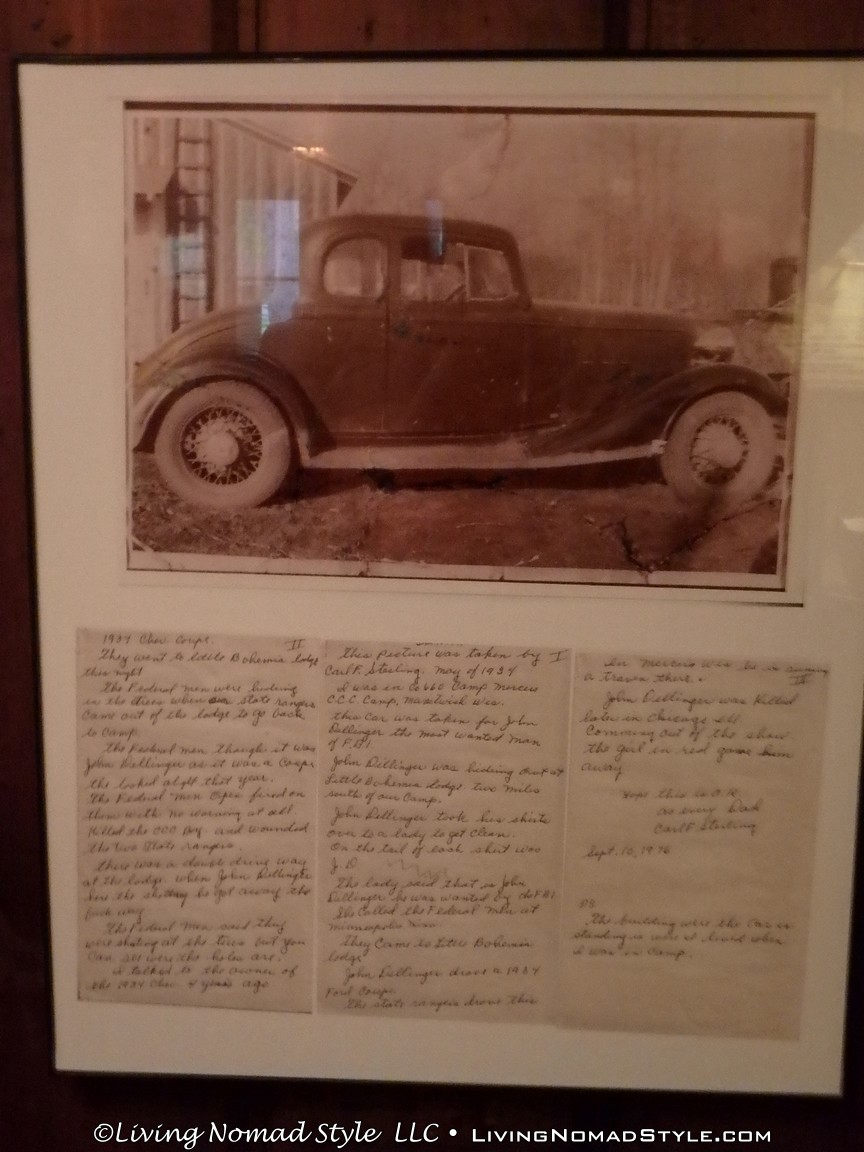 1934 Chev. Coupe. II
They went to Little Bohemia lodge
this night
the Federal men were hiding
in the trees when our state rangers
came out of the lodge to go back
to Camp.
the Federal men though it was
John Dellinger as it was a Coupe
the looked alight that year.
The Federal Men Open fired on
them with no warning at all.
Killed the CCC Boy. and wounded
the two State rangers.
there was a double drive way
at the lodge. when John Dellinger
here the shoting he got away the
back way
The Federal Men said they
were shoting at the tires but you
Can see were the holes are.
I talked to the owner of
the 1934 Chev 4 years ago
this Picture was taken by I
Carl F. Sterling. May of 1934
I was in Co 660 Camp Mercer
C.C.C. Camp, Manitwish Wis.
this Car was taken for John
Dellinger the most wanted man
of F.B.I.
John Dellinger was hidering out at
Little Bohemia Lodge two miles
south of our Camp.
John Dellinger took his shirts
over to a lady to get clean.
On the tail of each shirt was
J. D.
The lady said that is John
Dellinger he was wanted by the F.B.I
She Called the Federal Men at
Minneapolis Minn.
They Came to Little Bohemia
lodge
John Dellinger drove a 1934
Ford Coupe.
The state rangers drove this
in Mercer Wis he is running
a travern there. III
John Dellinger was Killed
later in Chicago Ill
Comming out of the show
the girl in red gave him
away
Hope this is O.K.
as ever Dad
Carl F. Sterling
Sept. 10, 1976
PS
The building were the Car is
standing is were I lived when
I was in Camp.
©Living Nomad Style LLC • LivingNomadStyle.com